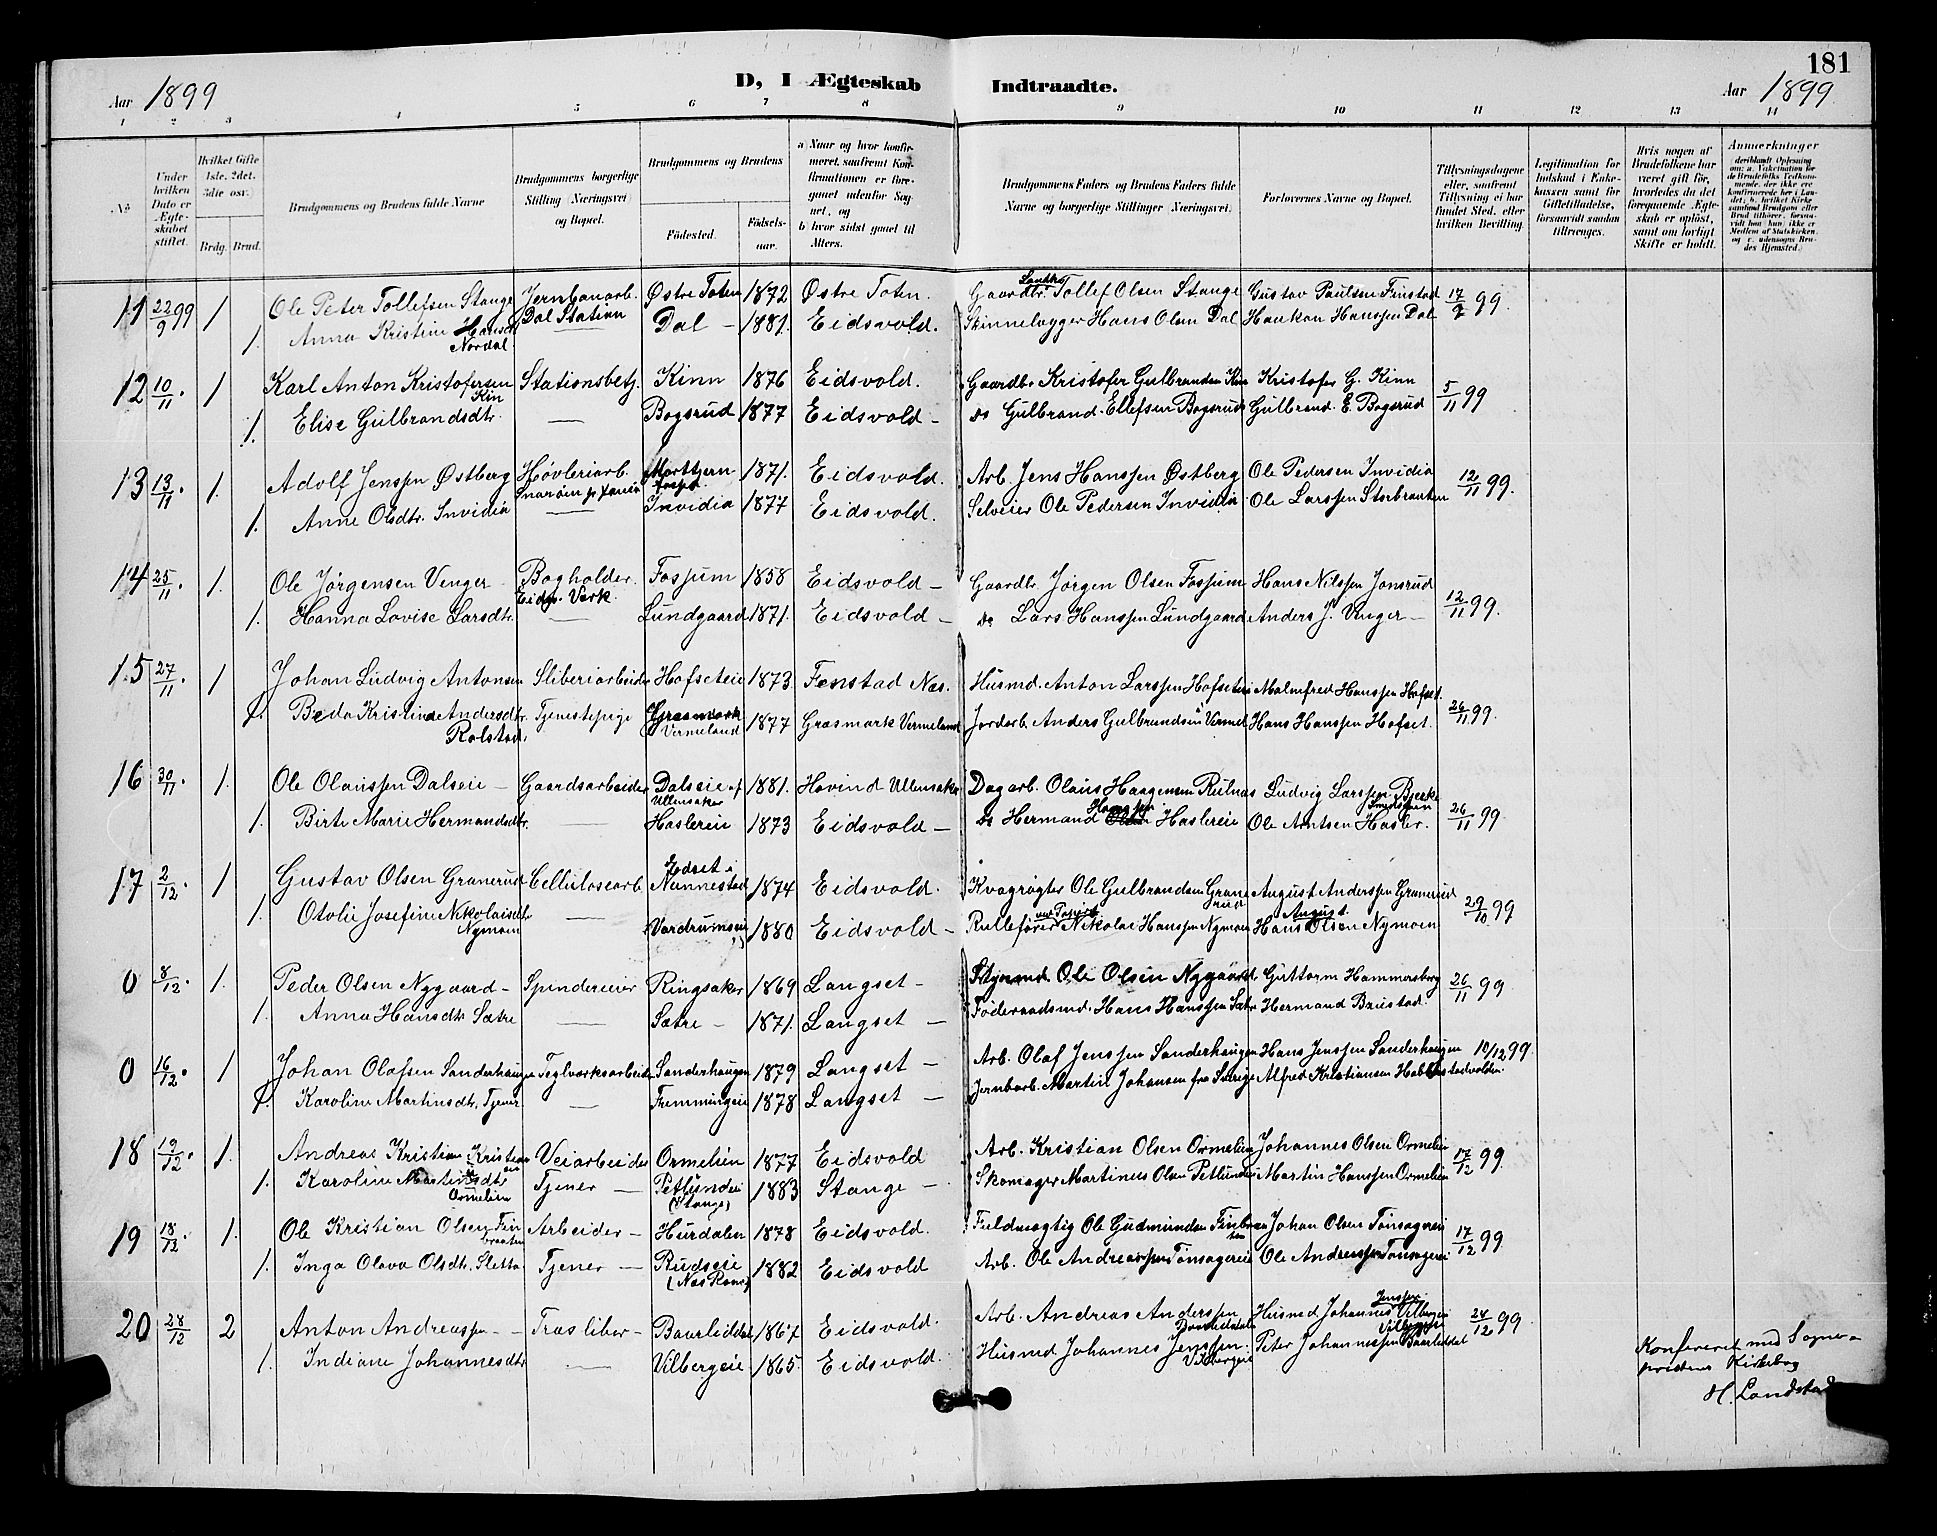 181
Aar 1899 D, I Ægteskab Indtraadte. Aar 1899
1 2 3 4 5 6 7 8 9 10 11 12 13 14
No
Under hvilken Dato er Ægteskabet stiftet.
Hvilket Gifte 1ste, 2det, 3die osv.
Brdg. Brud.
Brudgommens og Brudens fulde Navne
Brudgommens borgerlige Stilling (Næringsvei) og Bopæl.
Brudgommens og Brudens
Fødested. Fødselsaar.
a Naar og hvor konfirmeret, saafremt Konfirmationen er foregaaet udenfor Sognet, og
b hvor sidst gaaet til Alters.
Brudgommens Faders og Brudens Faders fulde Navne og borgerlige Stillinger (Næringsvei).
Forlovernes Navne og Bopæl.
Tillysningsdagene eller, saafremt Tillysning ei har fundet Sted, efter hvilken Bevilling.
Legitimation for Indskud i Enkekassen samt for Giftetilladelse, forsaavidt saadan tiltrænges.
Hvis nogen af Brudefolkene har været gift før, hvorledes da det foregaaende Ægteskab er opløst, samt om lovligt Skifte er holdt.
Anmærkninger
11 22/9 99 1 Ole Peter Tollefsen Stange Jernbanarb. Dal Station Østre Toten 1872 Østre Toten. Gaardbr. Tollef Olsen Stange Gustav Paulsen Finstad 17/9 99.
1. Anna Kristine Hansdt Nordal Dal – 1881. Eidsvold. Skinnelægger Hans Olsen Dal Haakon Hanssen Dal
12 10/11. 1 Karl Anton Kristofersen Kin Stationsbetj. Kinn 1876 Eidsvold. Gaardbr Kristofer Gulbrandsen Kin Kristofer G. Kinn 5/11 99
1. Elise Gulbrandsdtr. — Bogsrud 1877 Eidsvold – do Gulbrand Ellefsen Bogsrud Gulbrand E. Bogsrud
13 13/11. 1. Adolf Jenssen Østberg Høvleriarb. 1871. Eidsvold. Arb. Jens Hanssen Østberg Ole Pedersen Invidia 12/11 99.
1. Anne Olsdtr. Invidia — Invidia 1877 Eidsvold. Selveier Ole Pedersen Invidia Ole Larssen Storbraaten
14 25/11. 1. Ole Jørgensen Venger Bogholder. Eidsv. Verk. Fossum 1858 Eidsvold – Gaardbr Jørgen Olsen Fossum Hans Nilssen Jonsrud 12/11 99.
1. Hanna Lovise Larsdtr. — Lundgaard 1871. Eidsvold – do Lars Hanssen Lundgaard Anders J. Venger –
15 27/11. 1 Johan Ludvig Antonsen Sliberiarbeider Hofseteie 1873. Fenstad Nes. Husmd. Anton Larssen Hofseteie Malmfred Hanssen Hofset. 26/11 99.
1. Beda Kristina Andersdtr. Rolstad. Tjenestepige Græsmark Vermeland 1877 Græsmark Vermeland Jordarb. Anders Gulbrandsen i Vermel Hans Hanssen Hofset.
16 30/11. 1. Ole Olaussen Dalseie – Gaardsarbeider Dalseie af Ullensaker 1881. Hovind Ullensaker Dagarb. Olaus Haagensen Rulnæs Ludvig Larssen Bjerke 26/11 99
1. Birte Marie Hermandsdtr. — Haslereie 1873 Eidsvold – do Hermand Hanssen Haslereie Ole Arntsen Hasler.
17 2/12. 1 Gustav Olsen Granerud Cellulosearb. Nannestad 1874 Eidsvold. Kvægrøgter Ole Gulbrandsen Granerud August Anderssen Granerud 29/10 99
1. Otolie Josefine Nikolaisdtr. Nymoen — 1880 Eidsvold – Rullefører Nikolai Hanssen Nymoen Hans August Olsen Nymoen
0 8/12. 1. Peder Olsen Nygaard – Spindereieier Ringsaker 1869 Langset – Ole Olsen Nygaard. Guttorm Hammersborg 26/11 99
1. Anna Hansdtr Sætre — Sætre – 1871. Langset – Føderaadsmd. Hans Hanssen Sætr Hermand Brustad.
0 16/12. 1 Johan Olafsen Sanderhaugen Teglværksarbeider Sanderhaugen 1879 Langset – Arb. Olaf Jenssen Sanderhaugen Hans Jenssen Sanderhaugen 10/12 99.
1. Karoline Martinsdtr. Tjener. — Fremmingeie 1878 Langset – Jernbarb. Martin Johansen fra Sverige Alfred Kristiansen
18 19/12. 1. Andreas Kristian Kristiansen Veiarbeider Ormelien 1877 Eidsvold Arb. Kristian Olsen Ormelien Johannes Olsen Ormelien 17/12 99.
1. Karoline Martinusdtr Ormelien Tjener – (Stange) 1883 Stange – Skomager Martinus Olsen Martin Hanssen Ormelien
19 18/12 1. Ole Kristian Olsen Finbraaten Arbeider – Hurdalen 1878 Eidsvold. Fuldmægtig Ole Gudmundsen Johan Olsen Tønsagereie 17/12 99.
1. Inga Olava Olsdtr. Sletta Tjener – Rudseie 1882 Eidsvold Arb. Ole Andreassen Tønsagereie Ole Andreassen Tønsagereie
20 28/12 2 Anton Andreassen – – Træsliber – Baarliddal 1867 Eidsvold. Arb. Andreas Anderssen Baarliddal Husmd Johannes Jenssen Vilbergeie 24/12 99
1. Indiane Johannesdtr — Vilbergeie 1865. Eidsvold. Husmd Johannes Jenssen Vilbergeie Peter Johannessen Baarliddal
Konfereret med Sognepræstens Kirkebog
H. Landstad